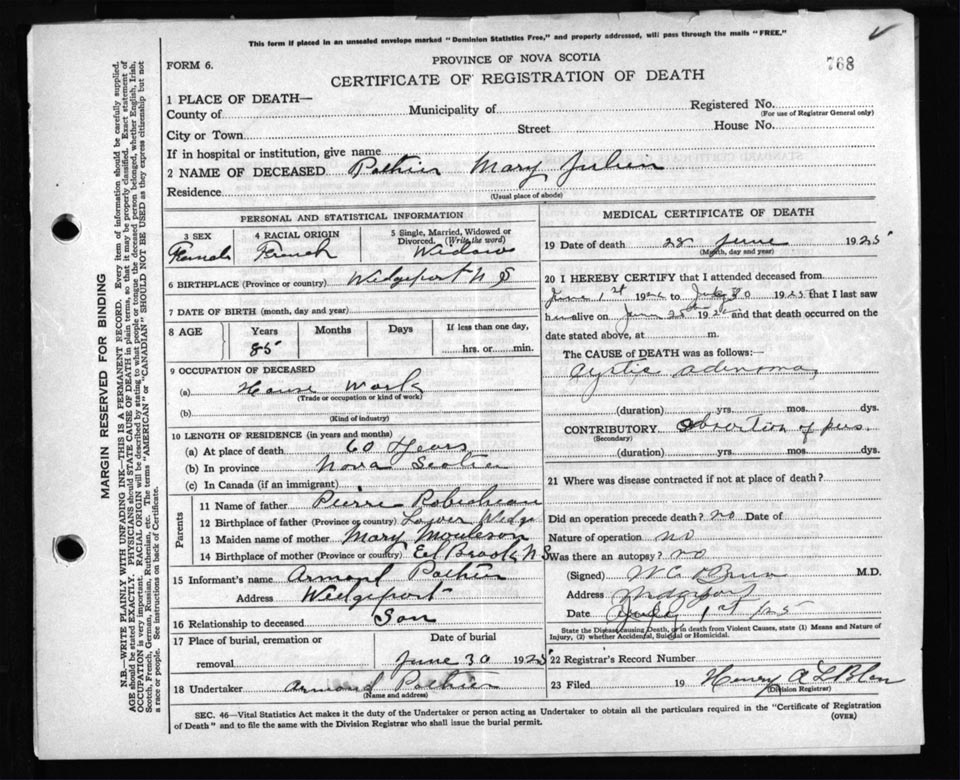 This form if placed in an unsealed envelope marked "Dominion Statistics Free," and properly addressed, will pass through the mails "FREE."
768
FORM 6.
PROVINCE OF NOVA SCOTIA
CERTIFICATE OF REGISTRATION OF DEATH
1 PLACE OF DEATH—
County of Municipality of Registered No.
(For use of Registrar General only)
City or Town Street House No.
If in hospital or institution, give name
2 NAME OF DECEASED Pothier Mary Julien
Residence
(Usual place of abode)
MARGIN RESERVED FOR BINDING
N.B.—WRITE PLAINLY WITH UNFADING INK—THIS IS A PERMANENT RECORD. Every item of information should be carefully supplied.
AGE should be stated EXACTLY. PHYSICIANS should STATE CAUSE OF DEATH in plain terms, so that it may be properly classified. Exact statement of
OCCUPATION is very important. RACIAL ORIGIN will be described by stating to what people or tongue the deceased person belonged, whether English, Irish,
Scotch, French, German, Russian, Ruthenian, etc. The terms "AMERICAN" or "CANADIAN" SHOULD NOT BE USED as they express citizenship but not
a race or people. See instructions on back of Certificate.
PERSONAL AND STATISTICAL INFORMATION
3 SEX 4 RACIAL ORIGIN 5 Single, Married, Widowed or
Divorced. (Write the word)
Female French Widow
6 BIRTHPLACE (Province or country) Wedgeport N S
7 DATE OF BIRTH (month, day and year)
8 AGE Years Months Days If less than one day,
85 hrs. or min.
9 OCCUPATION OF DECEASED
(a) House Work
(Trade or occupation or kind of work)
(b)
(Kind of industry)
10 LENGTH OF RESIDENCE (in years and months)
(a) At place of death 60 Years
(b) In province Nova Scotia
(c) In Canada (if an immigrant)
Parents
11 Name of father Pierre Robicheau
12 Birthplace of father (Province or country) Lower Wedge
13 Maiden name of mother Mary Mouleson
14 Birthplace of mother (Province or country) Eel Brook N S
15 Informant's name Armond Pothier
Address Wedgeport
16 Relationship to deceased Son
17 Place of burial, cremation or Date of burial
removal June 30 1925
18 Undertaker Armond Pothier
MEDICAL CERTIFICATE OF DEATH
19 Date of death 28 June 1925
(Month, day and year)
20 I HEREBY CERTIFY that I attended deceased from
June 1st 192 to 30 1925 that I last saw
h alive on June 25th 192 and that death occurred on the
date stated above, at m.
The CAUSE OF DEATH was as follows:—
Cystic adenoma
(duration) yrs. mos. dys.
CONTRIBUTORY of pus
(Secondary)
(duration) yrs. mos. dys.
21 Where was disease contracted if not at place of death?
Did an operation precede death? no Date of
Nature of operation no
Was there an autopsy? no
(Signed) M.D.
Address
Date 1st /25
State the Disease causing Death, or in death from Violent Causes, state (1) Means and Nature of
Injury, (2) whether Accidental, Suicidal or Homicidal.
22 Registrar's Record Number
23 Filed 19 Henry A LeBlanc
(Division Registrar)
SEC. 46—Vital Statistics Act makes it the duty of the Undertaker or person acting as Undertaker to obtain all the particulars required in the "Certificate of Registration
of Death" and to file the same with the Division Registrar who shall issue the burial permit.
(OVER)